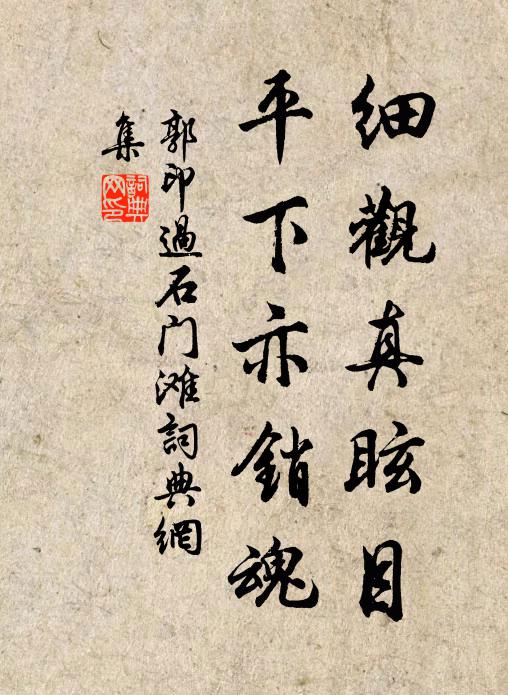 細觀真眩目
平下亦銷魂
郭印過石门滩詞典網
集
詞典
网印